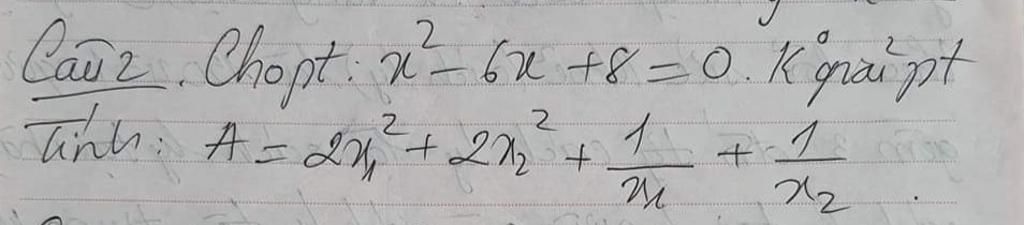 Câu 2. Cho pt: x² - 6x + 8 = 0. K° giải pt
Tính: A = 2x₁² + 2x₂² + 1/x₁ + 1/x₂.